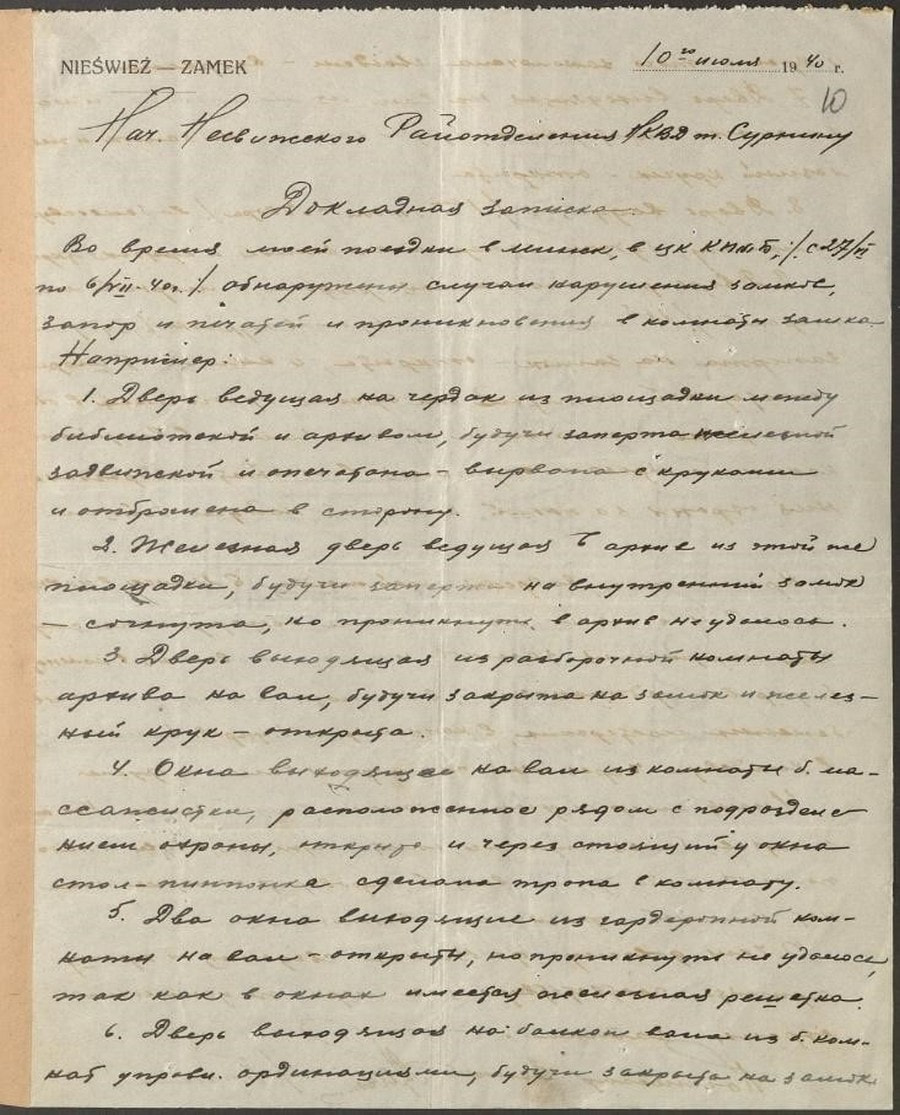 NIEŚWIEŻ — ZAMEK
10го июля 1940 г.
10
Нач. Несвижского Райотделения НКВД т. Суркину
Докладная записка.
Во время моей поездки в Минск, в ЦК КП(б)Б, ./. с 27/VI
по 6/VII-40г. ./. обнаружены случаи нарушения замков,
запор и печатей и проникновения в комнаты замка.
Например:
1. Дверь ведущая на чердак из площадки между
библиотекой и архивом, будучи заперта железной
задвижкой и опечатана – вырвана с круками
и отброшена в сторону.
2. Железная дверь ведущая в архив из этой же
площадки, будучи заперта на внутренний замок
– согнута, но проникнуть в архив не удалось.
3 Дверь выходящая из разборочной комнаты
архива на вал, будучи закрыта на замок и желез-
ный крук – открыта.
4. Окна выходящее на вал из комнаты б. ма-
ссажистки, расположенное рядом с подразделе
нием охраны, открыто и через стоящий у окна
стол-пинпонка сделана тропа в комнату.
5. Два окна выходящие из гардеропной ком-
наты на вал – открыты, но проникнуть не удалось,
так как в окнах имеется железная решетка.
6. Дверь выходящая на балкон вала из б. ком-
нат управ. ординациями, будучи закрыта на замок